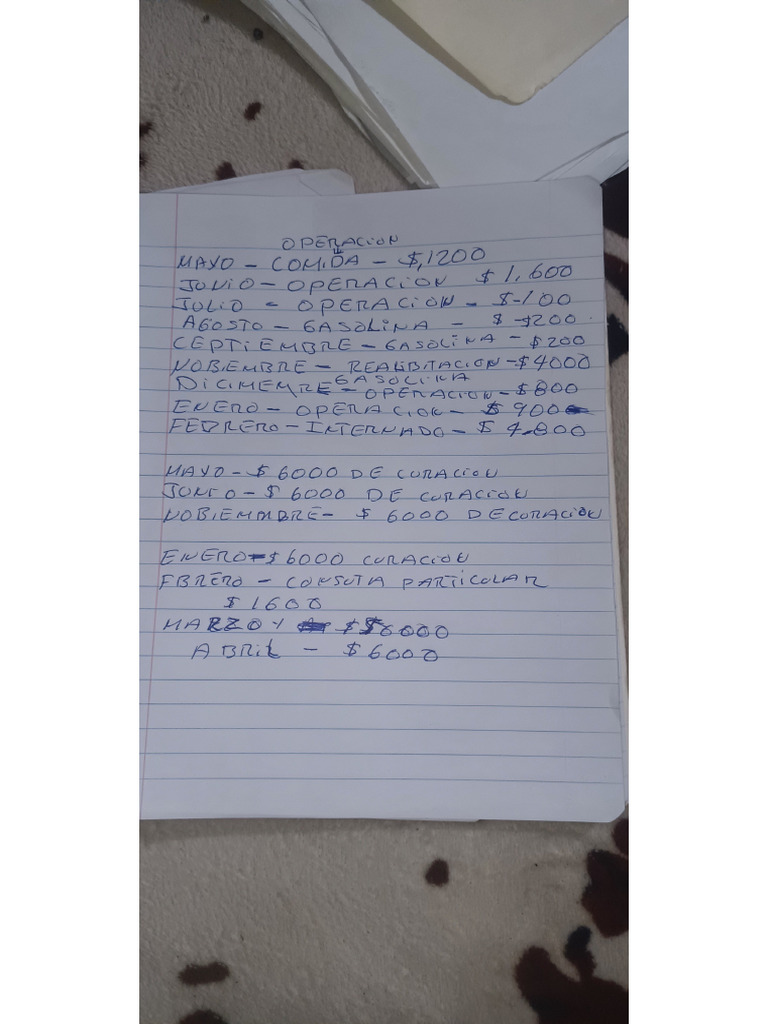 OPERACION
MAYO - COMIDA - $,1200
JUNIO - OPERACION $ 1,600
JULIO - OPERACION - $-100
AGOSTO - GASOLINA - $ -$200
CEPTIEMBRE - GASOLINA - $200
NOBIEMBRE - REALIBITACION - $4000
GASOLINA
DICIMEMRE - OPERACION - $800
ENERO - OPERACION - $ 900
FEBRERO - INTERNADO - $ 4.800
MAYO - $ 6000 DE CURACION
JUNIO - $ 6000 DE CURACION
NOBIEMMBRE - $ 6000 DE CURACION
ENERO - $6000 CURACION
FBRERO - CONSUTA PARTICULAR
$ 1600
MARZO Y $ $6000
ABRIL - $6000